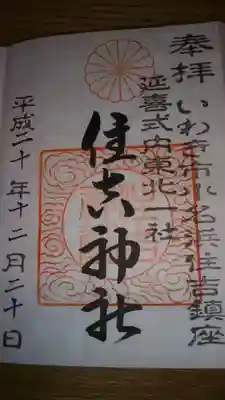 奉拝 いわき市小名浜住吉鎮座
延喜式内東北一社
住吉神社
平成二十年十二月二十日